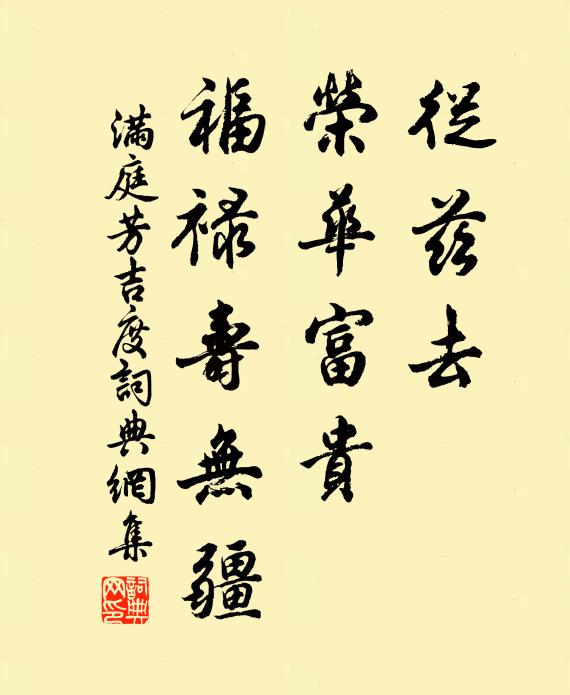 從茲去
榮華富貴
福祿壽無疆
滿庭芳吉度詞典網集
詞典
网印